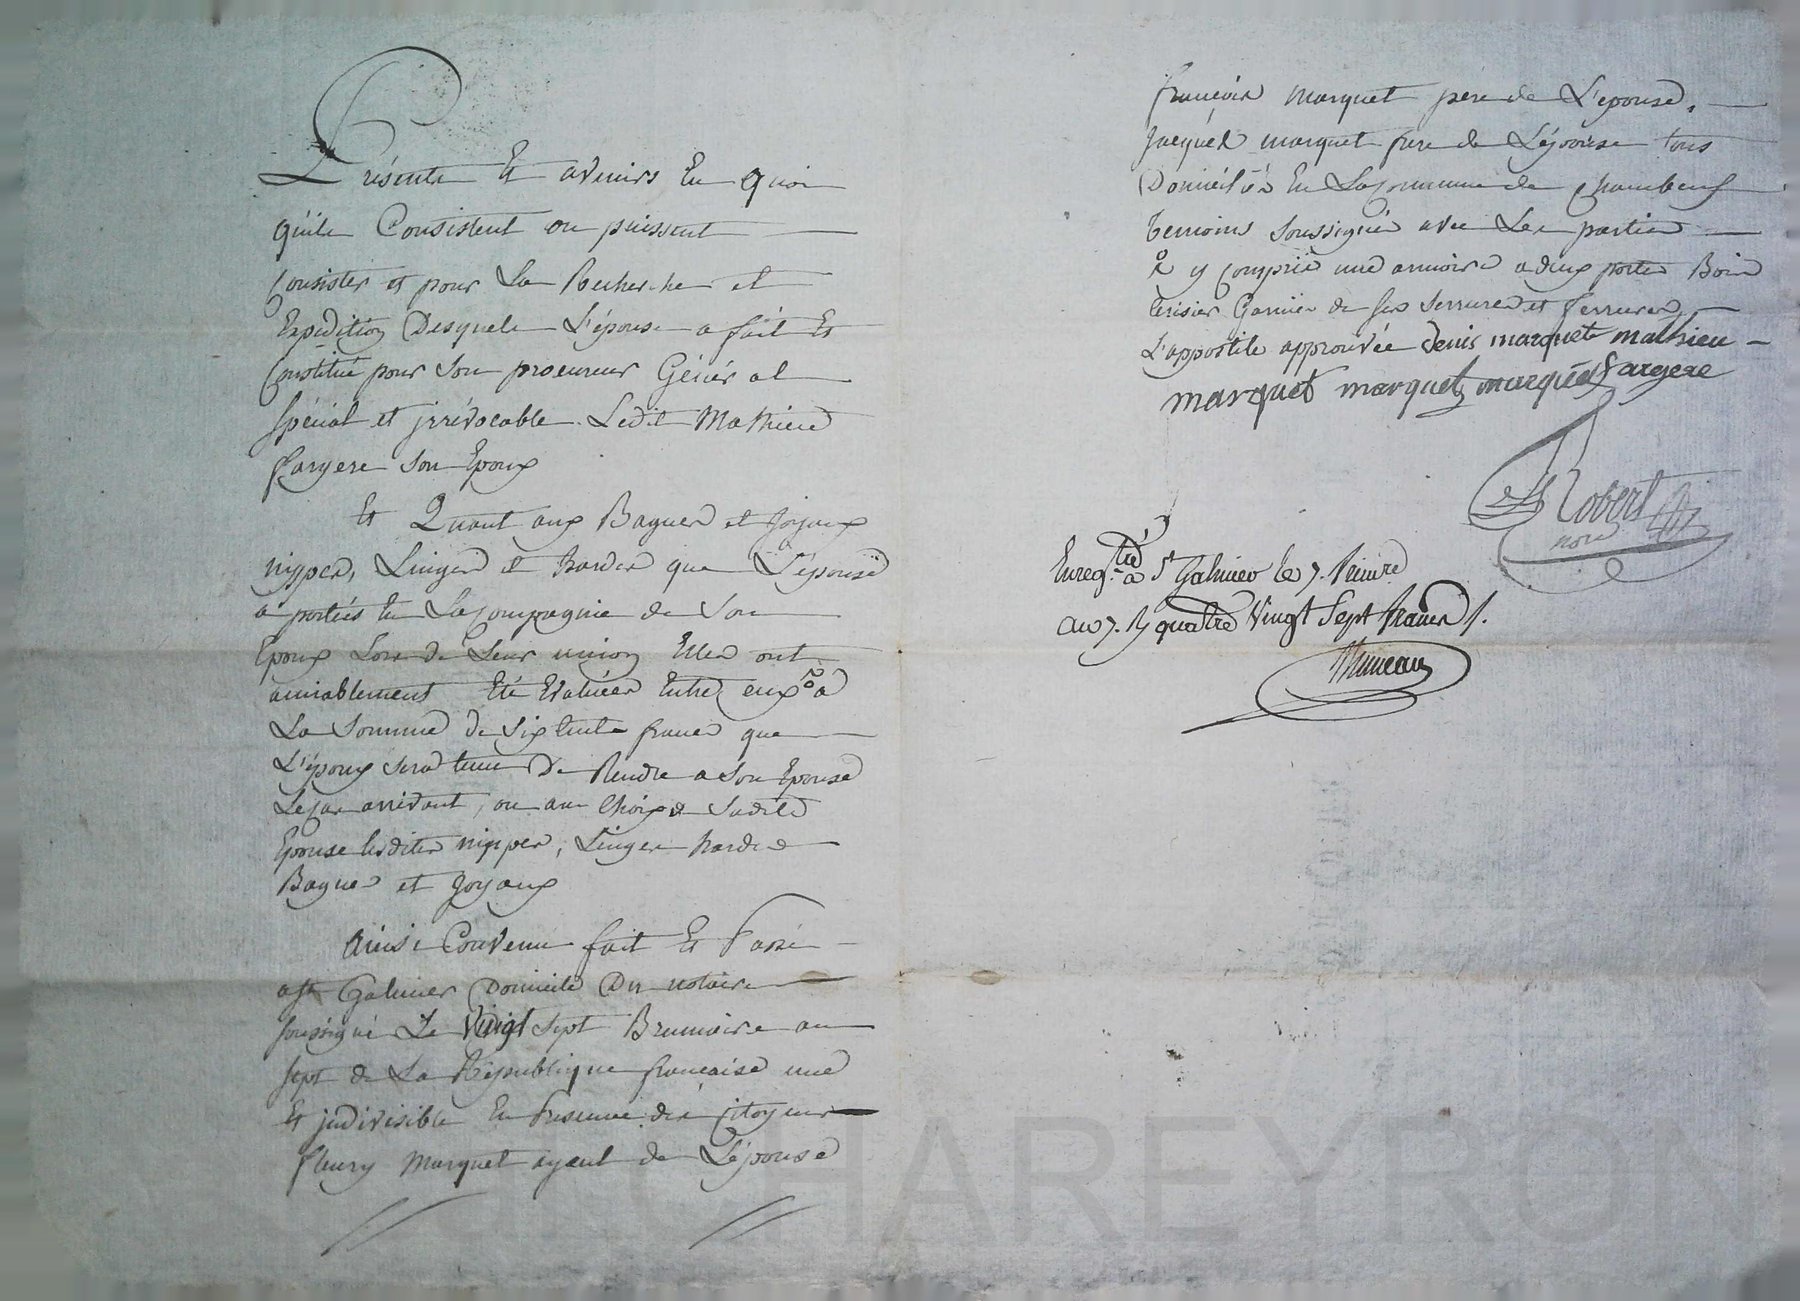 Présents Et avenirs En quoi
qu'ils Consistent ou puissent
Consister et pour La Recherche et
Expédition Desquels L'épouse a fait Et
Constitué pour Son procureur Génér al
Spécial et jrrévocable Ledit Mathieu
fargere Son Epoux
Et Quant aux Bagues et Joyaux
nippes, Linges et hardes que L'épouse
a portés En La Compagnie de Son
Epoux Lors de Leur union Elles ont
amiablement Eté Evaluées Entre eux a
La Somme de Six cents francs que
L'époux Sera tenu De Rendre a Son Epouse
Le Cas arrivant, ou au Choix de Sadite
Epouse lesdites nippes, Linges hardes
Bagues et Joyaux
Ainsi Convenu fait Et Passé
a St Galmier Domicile Du notaire
Soussigné Le Vingt Sept Brumaire an
Sept de La République française une
Et jndivisible En Presence des Citoyens
fleury Marquet ayeul de L'épouse
françois Marquet pere de L'epouse,
Jacques marquet frere de L'épouse tous
Domiciliés En La Commune de Chambeuf
temoins Soussignés avec Les parties
y compris une armoire a deux portes Bois
Cerisier Garnie de Ses Serrures et ferrures
L'appostile approuvée denis marquet mathieu
marquet marquet marquet fargere
Robert
nore
Enregtré a St Galmier le 7. frimre
an 7. R quatre Vingt Sept francs
J.CHAREYRON